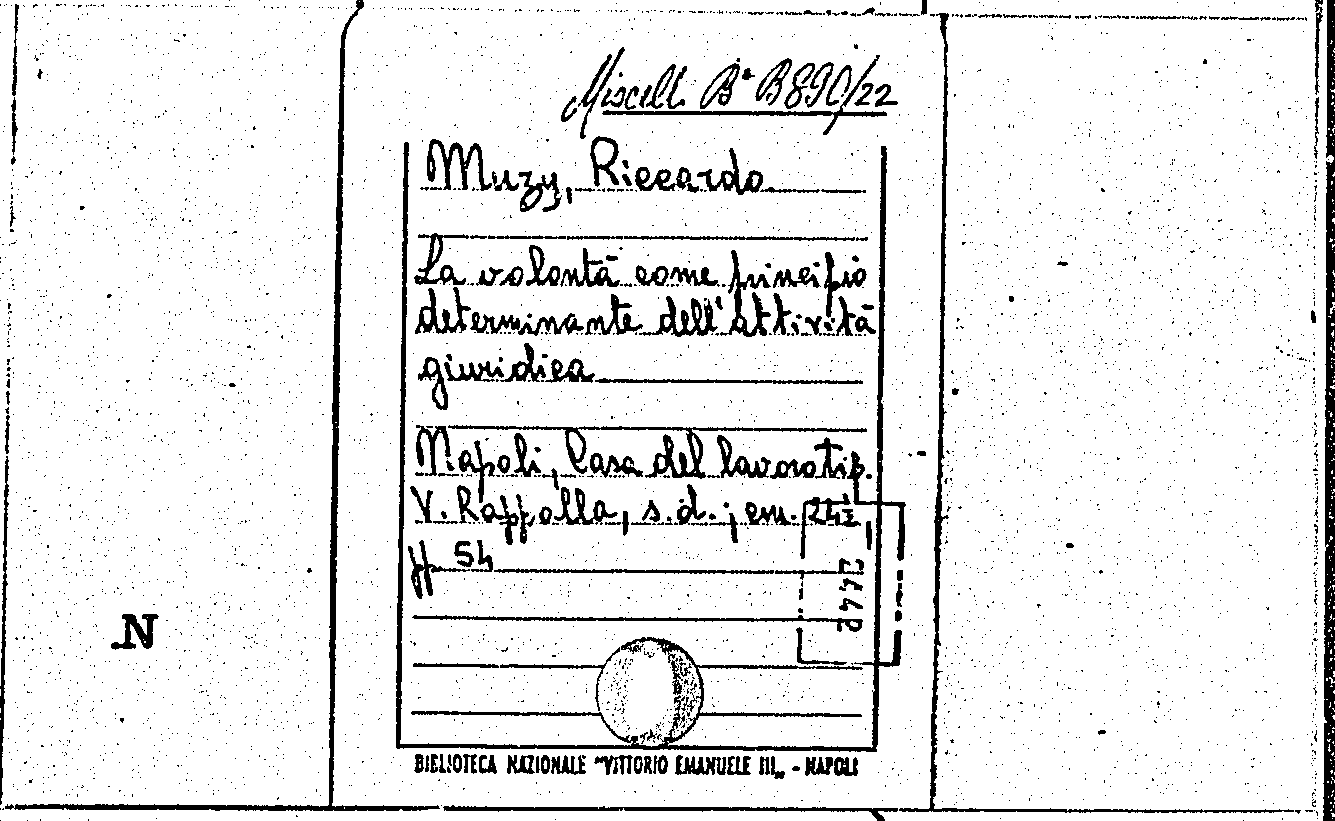 Miscell. Bᵃ B890/22
Muzy, Riccardo
La volontà come principio
determinante dell'attività
giuridica
Napoli, Casa del lavorotip.
V. Rappolla, s.d.; cm.
pp 54
.N
BIBLIOTECA NAZIONALE "VITTORIO EMANUELE III„ - NAPOLI